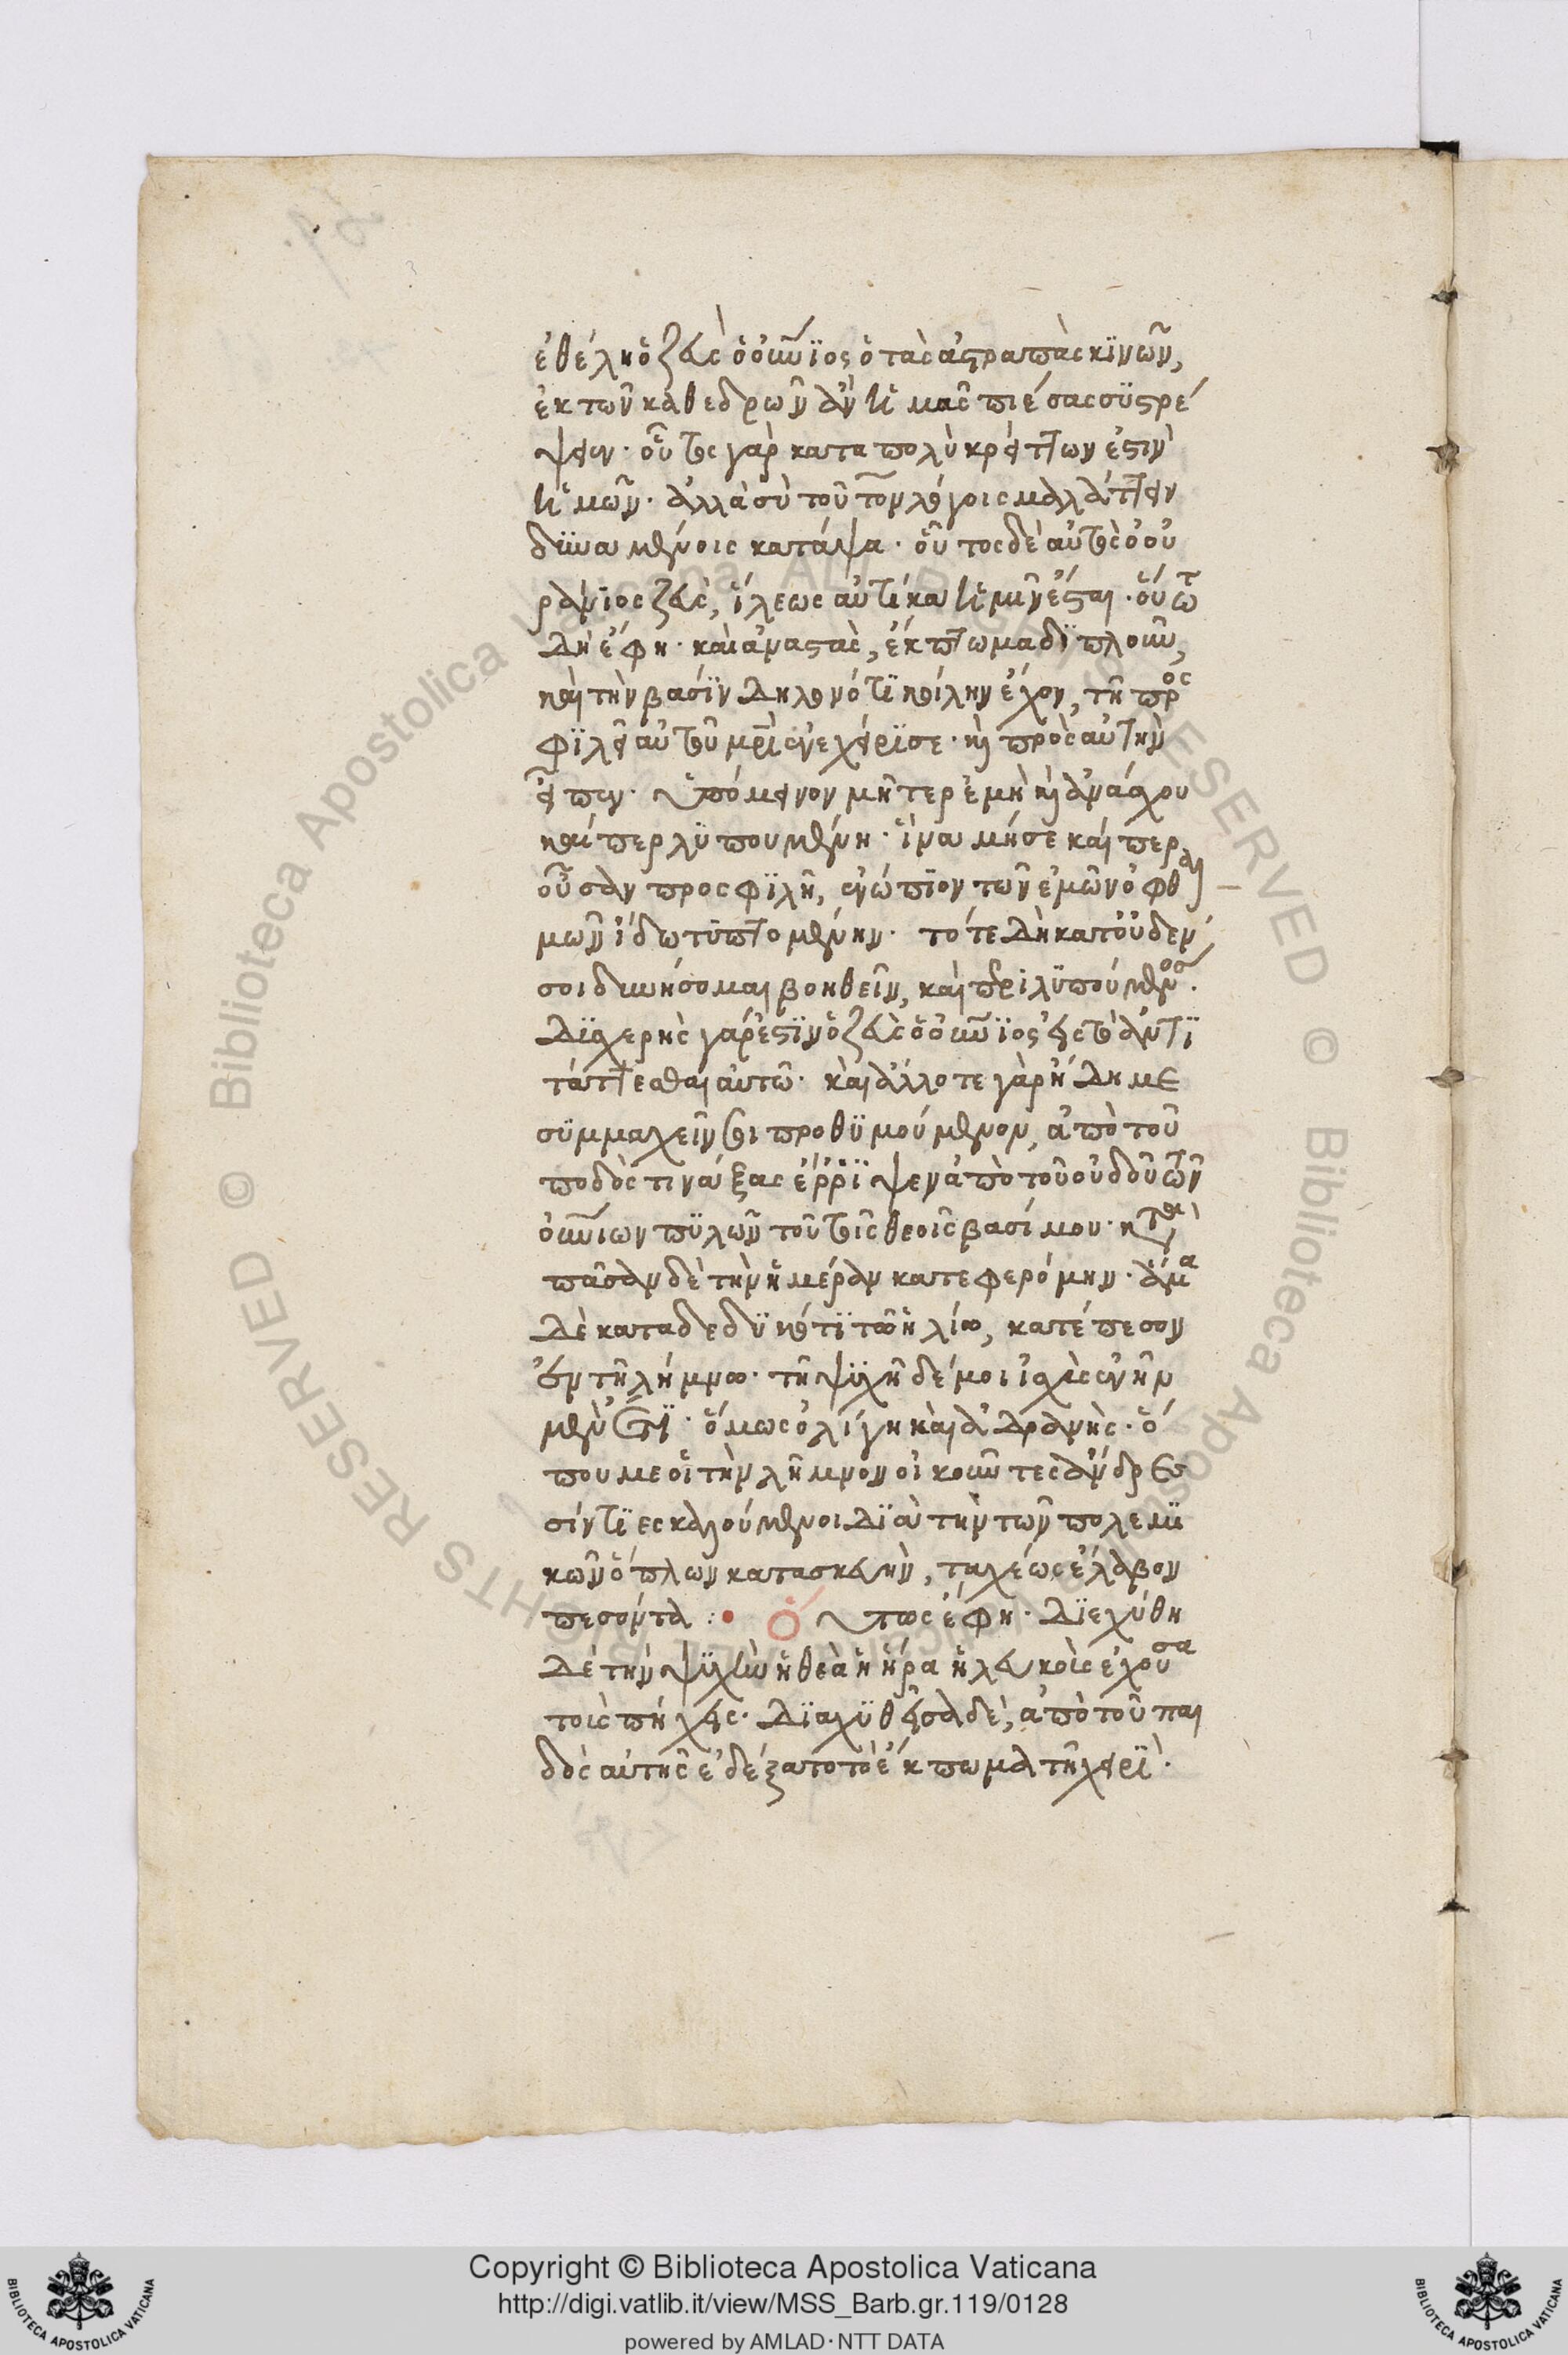 ἐθέλη ὁ ζεὺς ὁ οὐράνιος ὁ τὰς ἀστραπὰς κινῶν,
ἐκ τῶν καθεδρῶν ἂν ἡμᾶς πιέσας συστρέ
ψειν. οὗτος γὰρ κατα πολὺ κρείττων ἐστὶν
ἡμῶν. ἀλλὰ σὺ τοῦτον λόγοις μαλάττειν
δυναμένοις κατάψα. οὗτος δὲ αὐτὸς ὁ οὐ
ράνιος ζεὺς, ἵλεως αὐτίκα ἡμῖν ἔσται. οὕτω
δὴ ἔφη. καὶ ἀναστὰς, ἔκπτωμα διπλοῦν,
καὶ τὴν βασίν δηλονότι κοίλην ἔχον, τῆ προς
φιλεῖ αὐτοῦ μητρὶ ἐνεχείρισε. καὶ πρὸς αὐτὴν
εἶπεν. ὑπόμεινον μῆτερ ἐμὴ καὶ ἀνάσχου
καίπερ λυπουμένη. ἵνα μήσε καίπερ
οὖσαν προσφιλῆ, ἐνώπιον τῶν ἐμῶν ὀφθαλ
μῶν ἴδω τυπτομένην. τότε δὴ κατοὐδεν
σοι δυνήσομαι βοηθεῖν, καὶ περιλυπούμενος.
δυσχερὴς γάρ ἐστιν ὁ ζεὺς ὁ οὐράνιος εἰς τὸ ἀντι
τάττεσθαι αὐτῶ. καὶ ἄλλοτε γὰρ ἤδη με
συμμαχεῖν σοι προθυμούμενον, ἀπὸ τοῦ
ποδὸς τινάξας ἔρριψεν ἀπὸ τοῦ οὐδοῦ τῶν
οὐρανίων πυλῶν τοῦ τοῖς θεοῖς βασίμου. κ
πᾶσαν δὲ τὴν ἡμέραν κατεφερόμην. ἅμα
δὲ καταδεδυκότι τῶ ἡλίω, κατέπεσον
ἐν τῆ λήμνω. τῆ ψυχῆ δέ μοι ἰσχὺς ἐνῆν
μὲν ἔτι. ὅμως ὀλίγη καὶ ἀδρανὴς. ὅ
που με οἱ τὴν λῆμνον οἰκοῦντες ἄνδρες
σίντιες καλούμενοι διὰ τὴν τῶν πολεμι
κῶν ὅπλων κατασκευὴν, ταχέως ἔλαβον
πεσοντα :• Ὅυτως ἔφη. διεχύθη
δὲ τὴν ψυχὴν ἡ θεὰ ἡ ἥρα ἡ λευκοὺς ἔχουσα
τοὺς πήχεις. διαχυθεῖσα δὲ, ἀπὸ τοῦ παι
δὸς αὐτῆς ἐδέξατο τὸ ἔκπωμα τῆ χειρὶ.
Copyright © Biblioteca Apostolica Vaticana
http://digi.vatlib.it/view/MSS_Barb.gr.119/0128
powered by AMLAD · NTT DATA